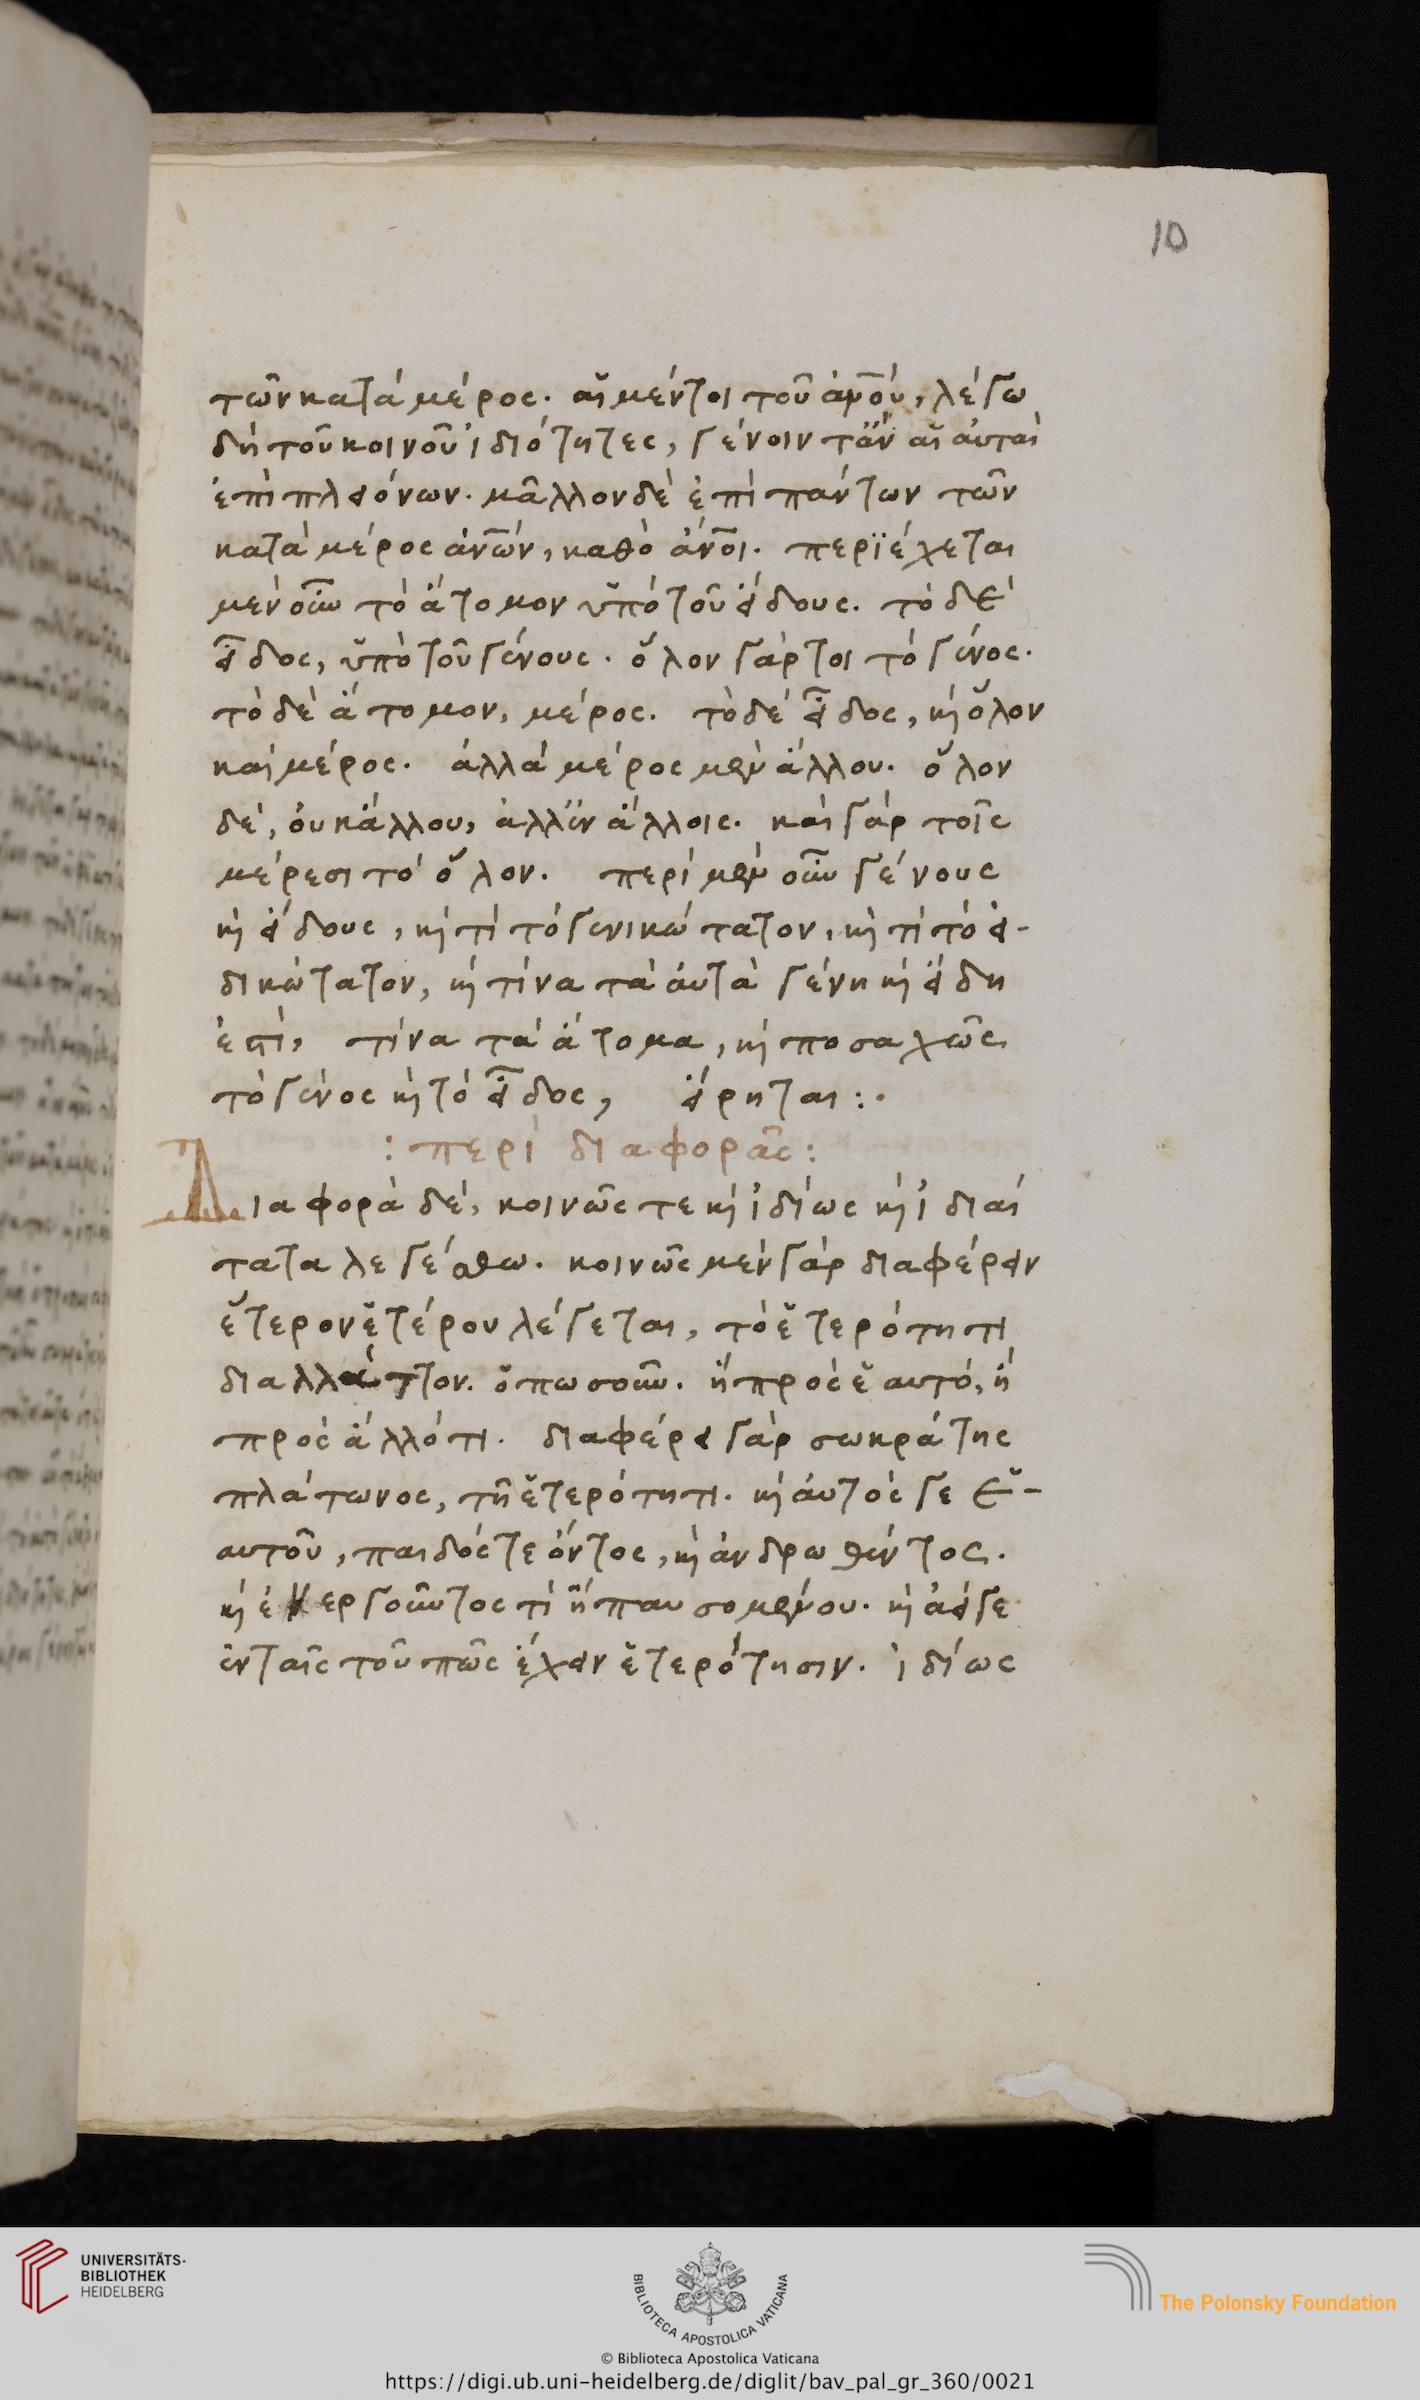 10
τῶν κατὰ μέρος. αἱ μέντοι τοῦ ἀνου, λέγω
δὴ τοῦ κοινοῦ ἰδιότητες, γένοιντ᾽ ἂν αἱ αὐταὶ
ἐπὶ πλειόνων. μᾶλλον δὲ ἐπὶ πάντων τῶν
κατὰ μέρος ἀνων, καθὸ ἄνοι. περϊέχεται
μὲν οὖν τὸ ἄτομον ὑπὸ τοῦ εἴδους. τὸ δὲ
εἶδος, ὑπὸ τοῦ γένους. ὅλον γάρ τοι τὸ γένος.
τὸ δὲ ἄτομον, μέρος. τὸ δὲ εἶδος, καὶ ὅλον
καὶ μέρος. ἀλλὰ μέρος μὲν ἄλλου. ὅλον
δὲ, οὐκ ἄλλου, ἀλλ᾽ ἐν ἄλλοις. καὶ γὰρ τοῖς
μέρεσι τὸ ὅλον. περὶ μὲν οὖν γένους
καὶ εἴδους, καὶ τί τὸ γενικώτατον, καὶ τί τὸ εἰ-
δικώτατον, καὶ τίνα τὰ αὐτὰ γένη καὶ εἴδη
ἐστὶ, τίνα τὰ ἄτομα, καὶ ποσαχῶς
τὸ γένος καὶ τὸ εἶδος, εἴρηται :.
: περὶ διαφορᾶς :
Διαφορὰ δὲ, κοινῶς τε καὶ ἰδίως καὶ ἰδιαί
τατα λεγέσθω. κοινῶς μὲν γὰρ διαφέρειν
ἕτερον ἑτέρου λέγεται, τὸ ἑτερότητι
διαλλάττον. ὁπωσοῦν. ἢ πρὸς ἑαυτό, ἢ
πρὸς ἄλλό τι. διαφέρει γὰρ σωκράτης
πλάτωνος, τῆ ἑτερότητι. καὶ αὐτός γε ἑ-
αυτοῦ, παιδός τε ὄντος, καὶ ἀνδρωθέντος.
καὶ ἐνεργοῦντος τὶ ἢ παυσομένου. καὶ ἀεί γε
ἐν ταῖς τοῦ πῶς ἔχειν ἑτερότησιν. ἰδίως
UNIVERSITÄTS-
BIBLIOTHEK
HEIDELBERG
BIBLIOTECA APOSTOLICA VATICANA
The Polonsky Foundation
© Biblioteca Apostolica Vaticana
https://digi.ub.uni-heidelberg.de/diglit/bav_pal_gr_360/0021